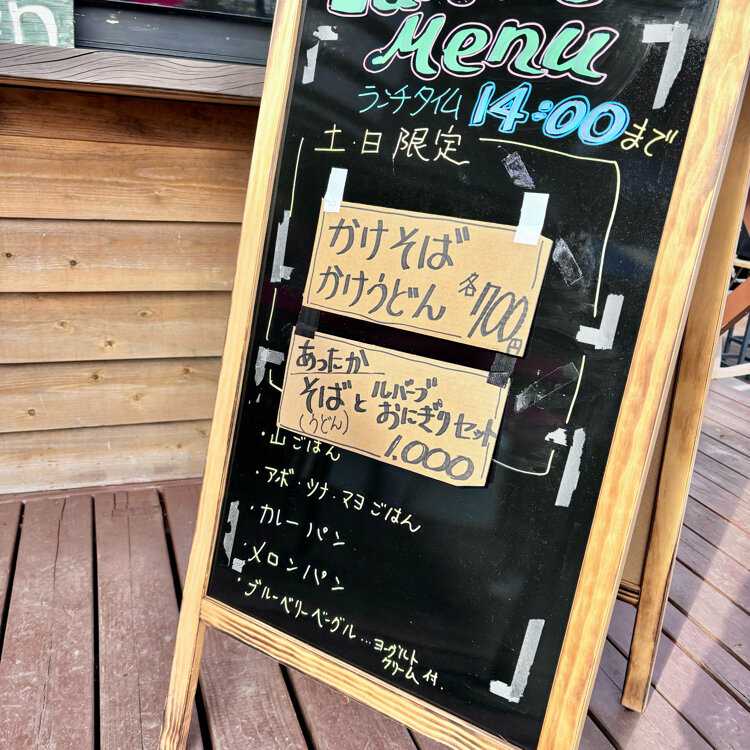 Menu
ランチタイム 14:00まで
土・日限定
かけそば
かけうどん 各700円
あったか
そばとルバーブおにぎりセット
(うどん)
1.000
・山ごはん
・アボ・ツナ・マヨごはん
・カレーパン
・メロンパン
・ブルーベリーベーグル…ヨーグルト
クリーム付.